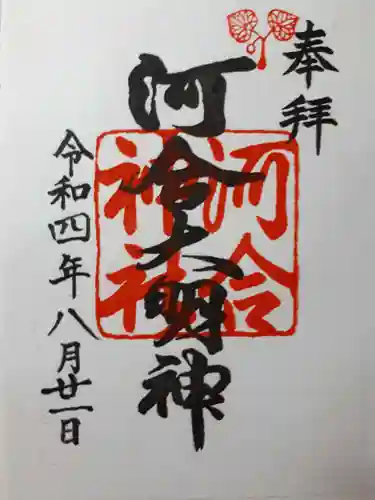 奉拝
河合大明神
河合神社
令和四年八月廿一日